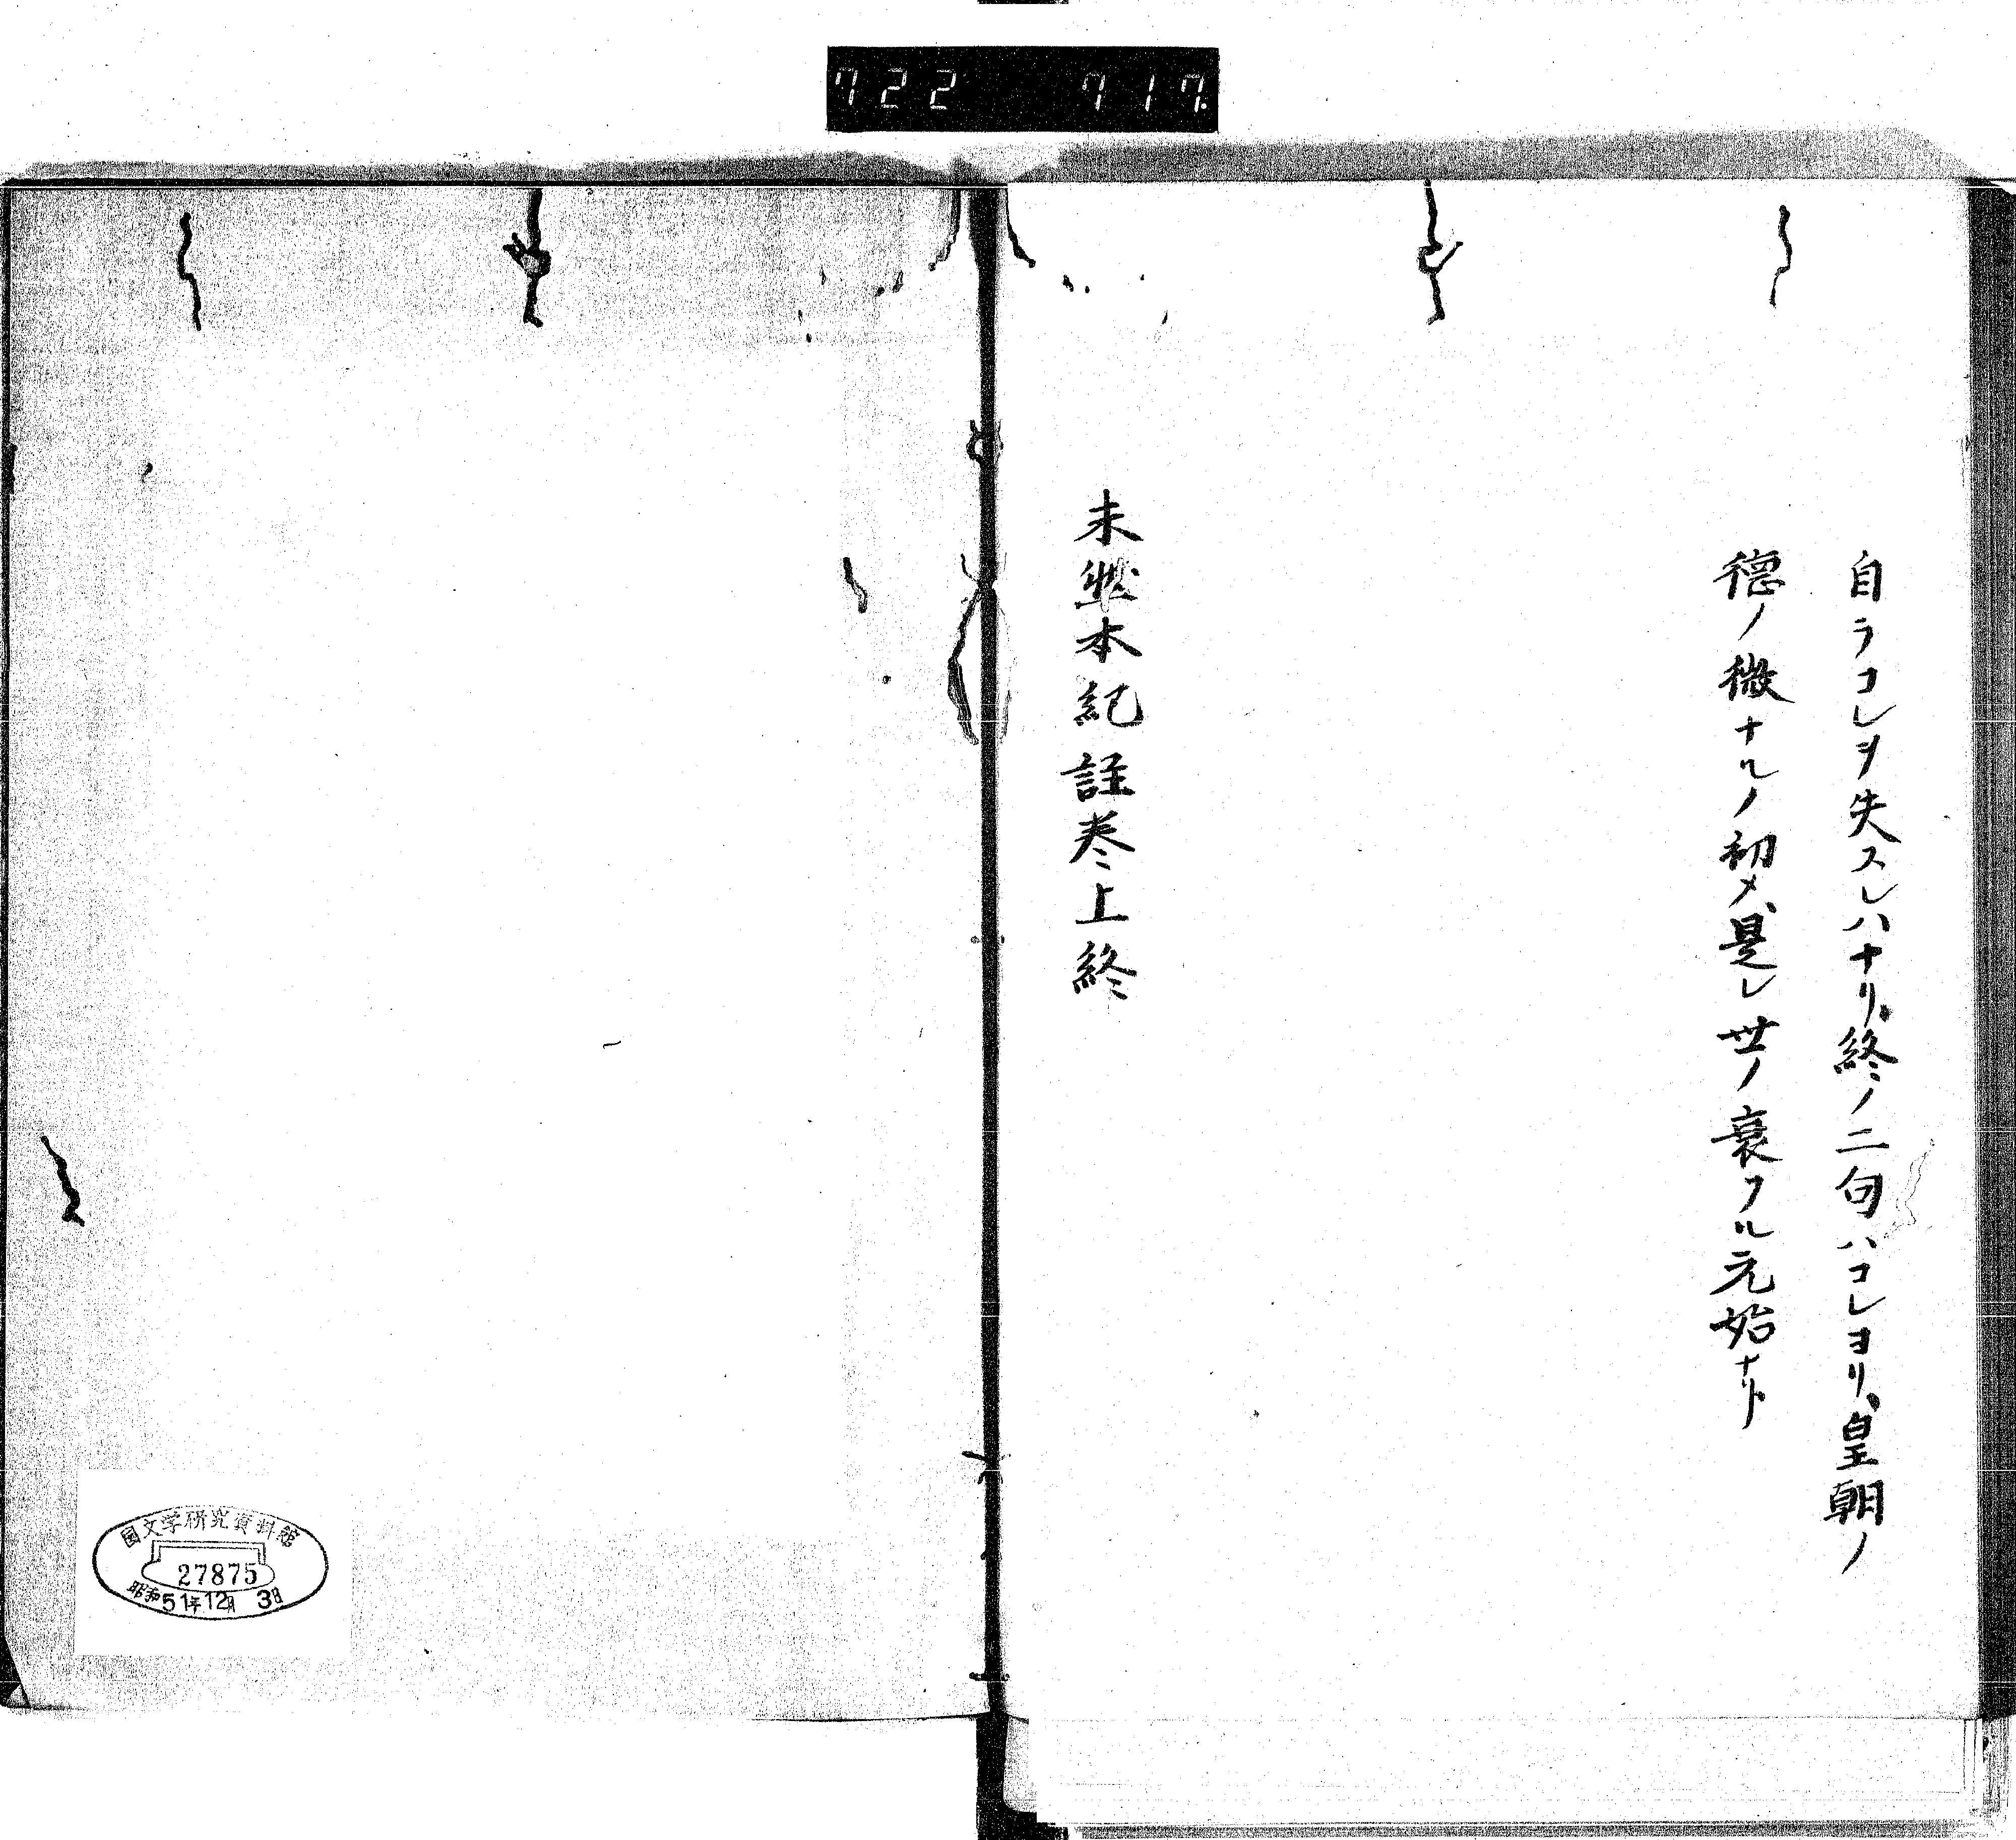 722 717.
自ラコレヲ失スレハナリ。終ノ二句ハコレヨリ、皇朝ノ
徳ノ微ナルノ初メ、是レ世ノ衰フル元始ナリ
未然本紀註巻上終
国文学研究資料館
27875
昭和51年12月3日